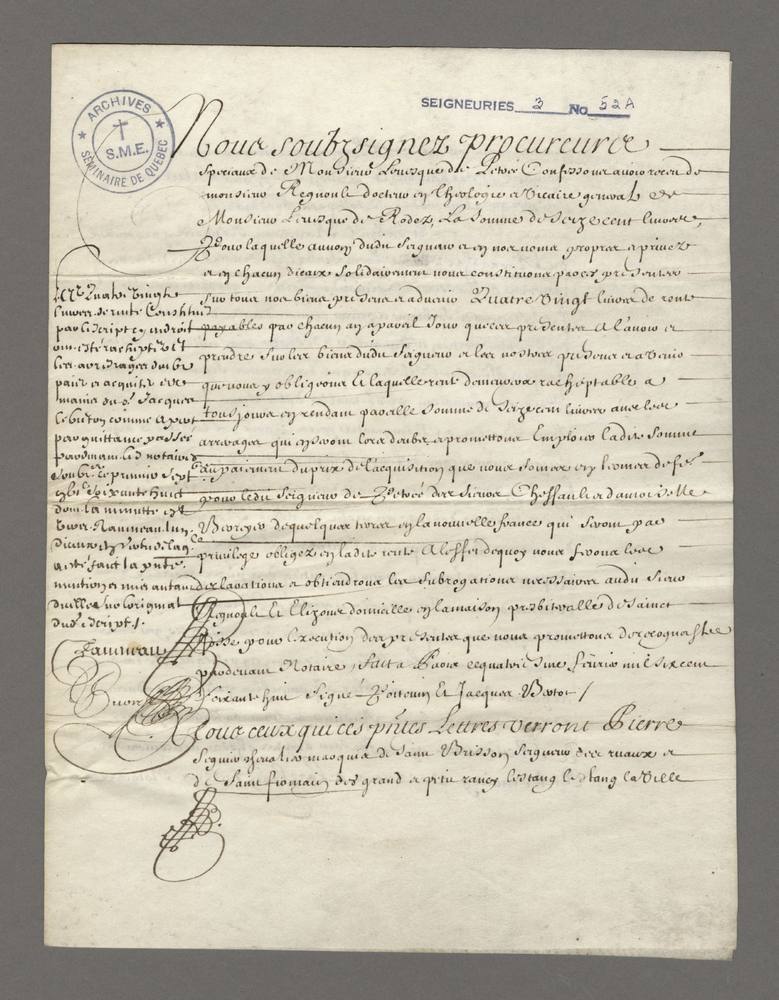 ARCHIVES
S.M.E.
SÉMINAIRE DE QUÉBEC
SEIGNEURIES 3 No 52A
Nous soubzsignez procureurs
speciaux de Monsieur L'evesque de Petrée Confessons avoir receu de
monsieur Regnoult docteur en theologie et vicaire general de
Monsieur L'evesque de Rodez, La somme de seize cent livres,
Pour laquelle au nom dudit Seigneur et en nos noms propres et privez
et en chacun d'iceux solidairement nous constituons par ces presentes
sur tous nos biens presens et advenir Quatre vingt livres de rente
payables par chacun an a pareil Jour que ces presentes A l'avoir et
prendre sur les biens dudit Seigneur et les nostres presens et a venir
que nous y obligeons Et laquelle rente demeurera racheptable a
tous jours en rendant pareille somme de seize cent livres avec les
arrerages qui en seront lors deubz et promettons Emploier ladite somme
au paiement du prix de l'acquisition que nous sommes en
pour ledit Seigneur de Petrée des sieurs et damoiselle
de quelques terres en la nouvelle france qui seront par
privilege obligez en ladite rente A l'effet de quoy nous ferons les
declarations et obtiendrons les subrogations necessaires audit sieur
Regnoult Et Elizons domicille en la maison presbiteralle de sainct
pour l'execution des presentes que nous promettons de recognoistre
pardevant Notaire, fait a Paris ce quatriesme fevrier mil six cent
soixante huit Signé Poitevin Et Jacques Bertot /
Tous ceux qui ces pntes Lettres verront Pierre
Seguier chevalier marquis de saint Brisson seigneur des ruaux et
de Saint firmain des grand et petit rancy lestang le tang la ville
Quatre Vingts
livres de rente Constituez
par l'escript en droit
ont esté racheptez et
les arrerages dus
paiez et acquitez es
mains du Sr Jacques
le breton comme apert
par quittance passée
pardevant les notaires
soubz le premier sept.
soixante huit
dont la minutte est
vers Rauineau l'un
d'iceux En Vertu de laq.le
a esté fait la pnte
mention et mis autant
d'icelle sur l'original
dud. Escript.